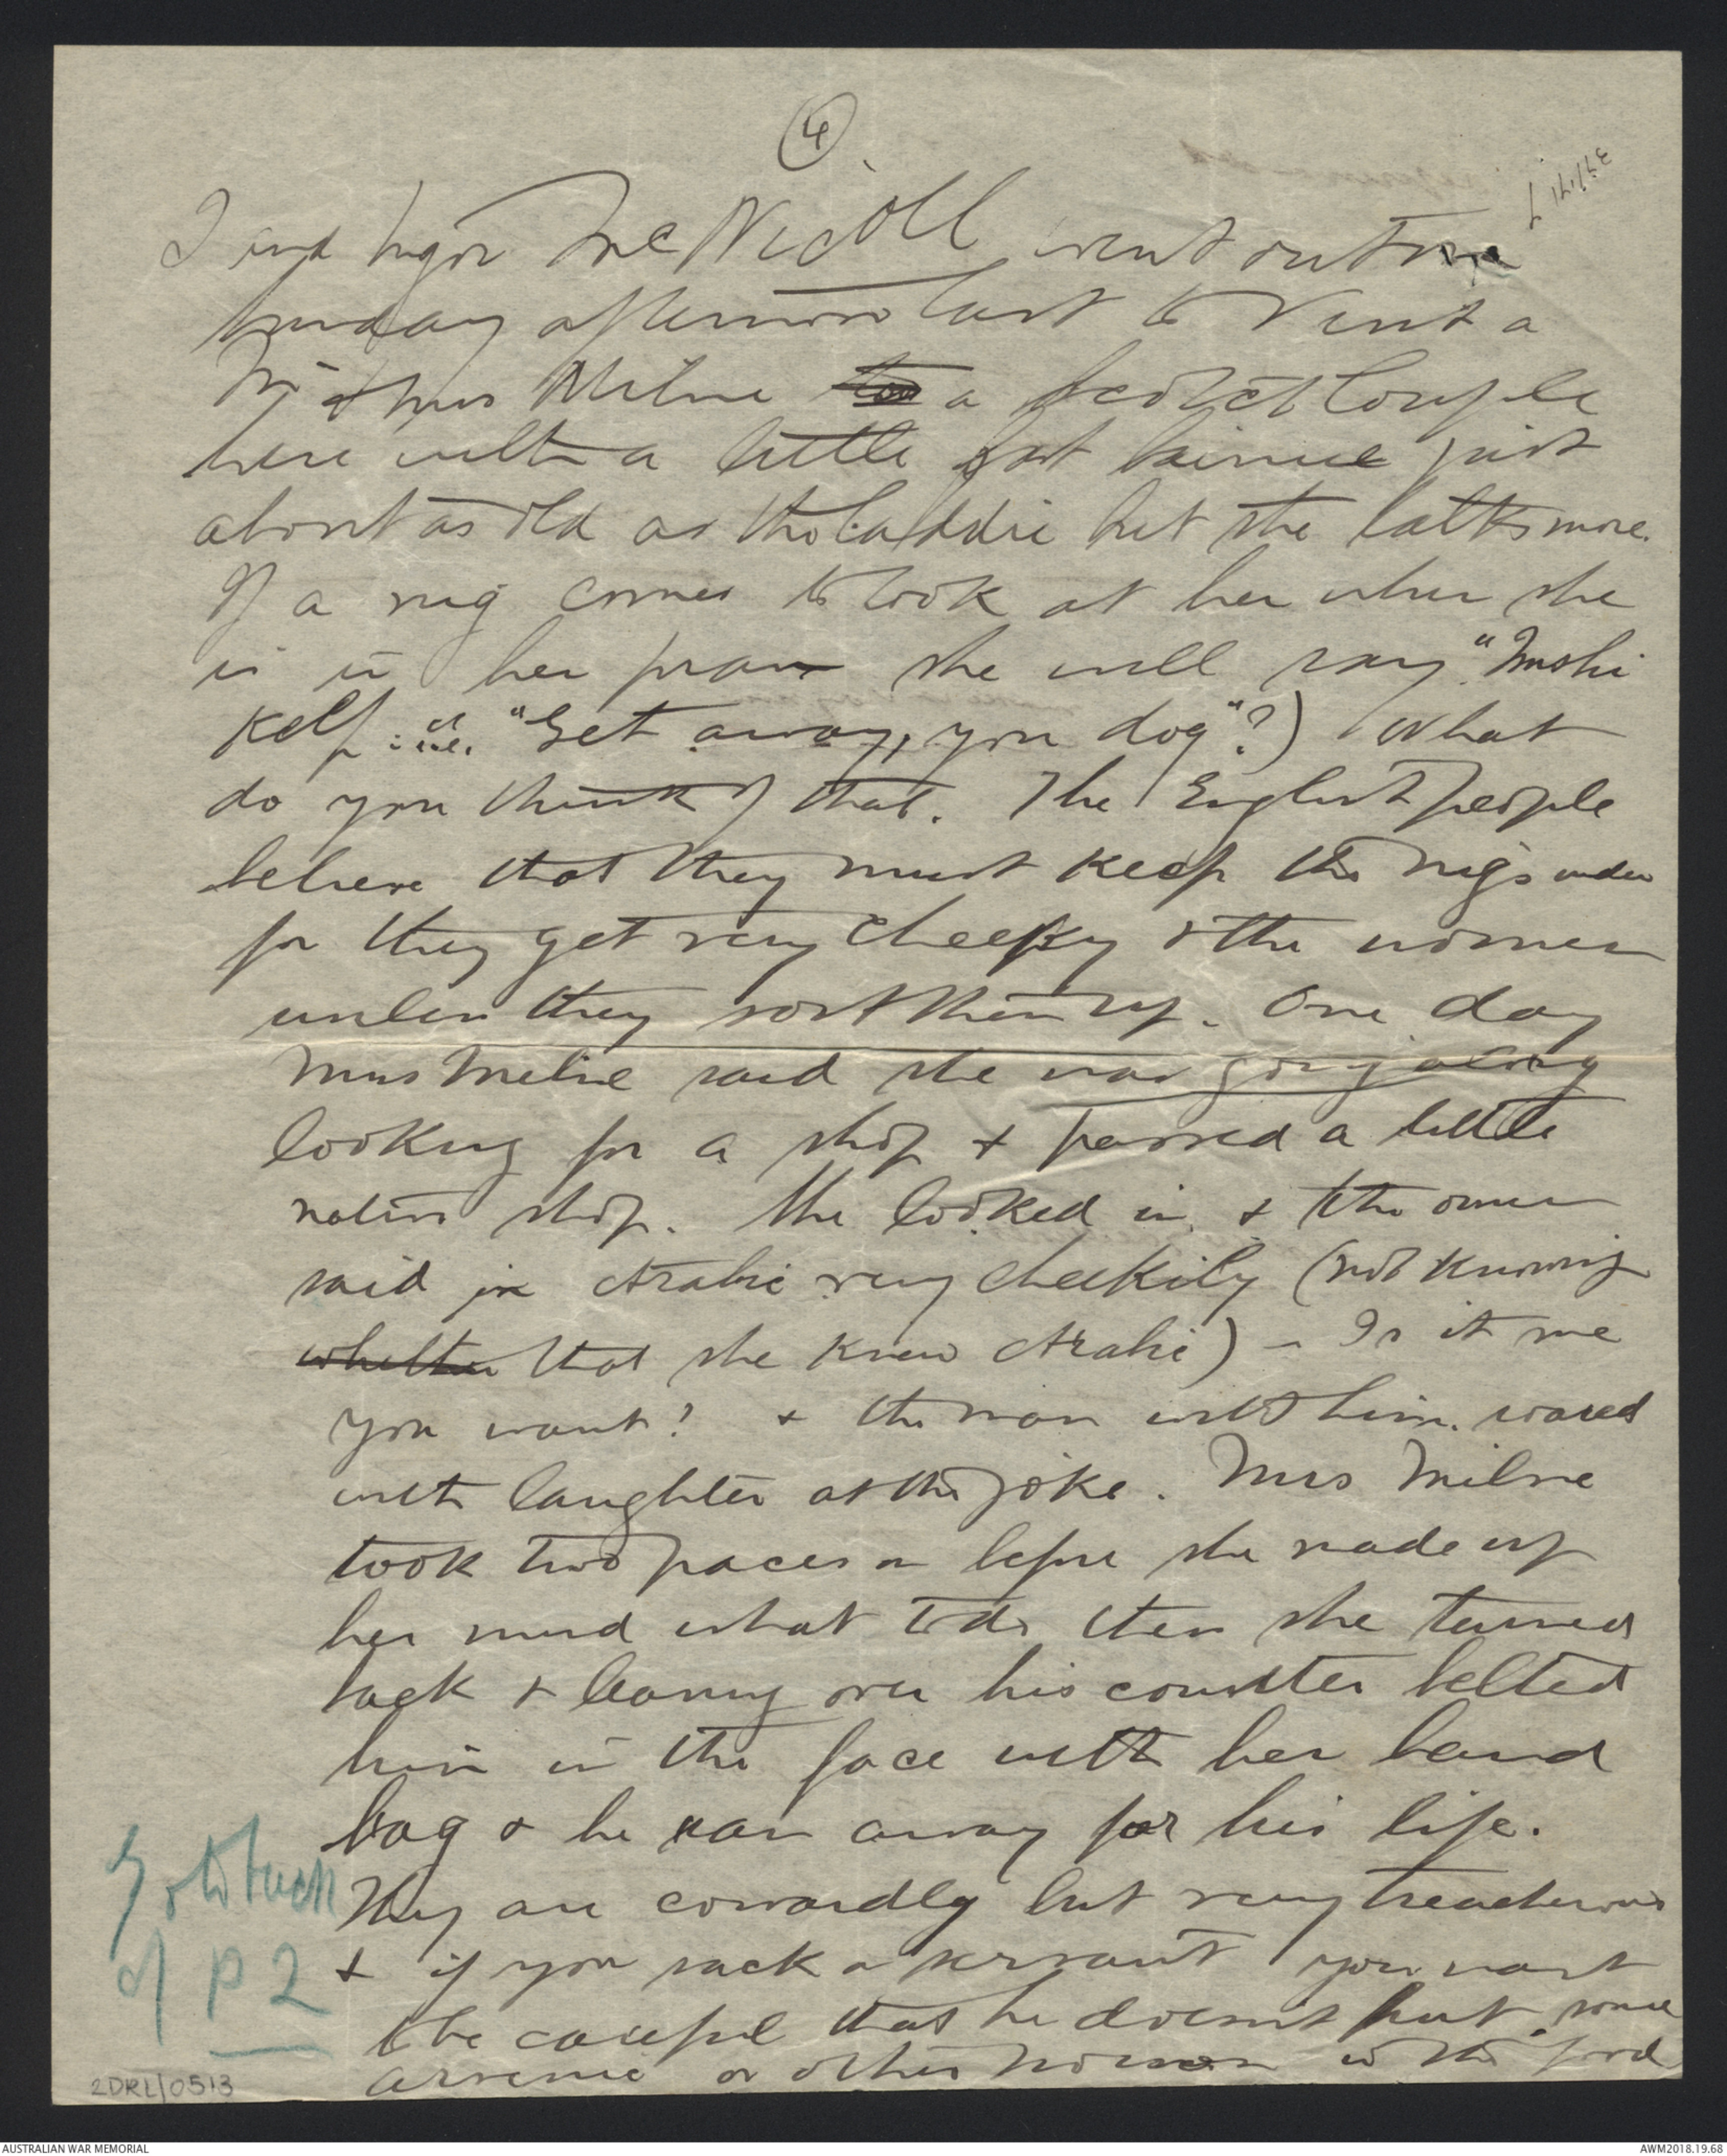 4
I and Major McNicoll went out on
Sunday afternoon last to visit a
Mr & Mrs Milne a Scotch Couple
here with a little fat bairnie just
about as old as the laddie but she talks more.
If a nig comes to look at her when she
is in her pram she will say "Imshi
Kelp i.e. "Get away, you dog"?) What
do you think of that. The English people
believe that they must keep the nigs under
for they get very cheeky & the women
unless they sort them up. One day
Mrs Milne said she was going along
looking for a shop & passed a little
native shop. She looked in & the owner
said in Arabic very cheekily (not knowing
whether that she knew Arabic) – Is it me
you want? & the man with him
with laughter at the joke. Mrs Milne
took two paces on before she made up
her mind what to do then she turned
back & leaning over his counter belted
him in the face with her hand
bag & he ran away for his life.
They are cowardly but very treacherous
& if you sack a servant you want
to be careful that he doesn't put some
arsenic or other poison in the food
Go to back
of P 2
2DRL/0513
AUSTRALIAN WAR MEMORIAL
AWM2018.19.68